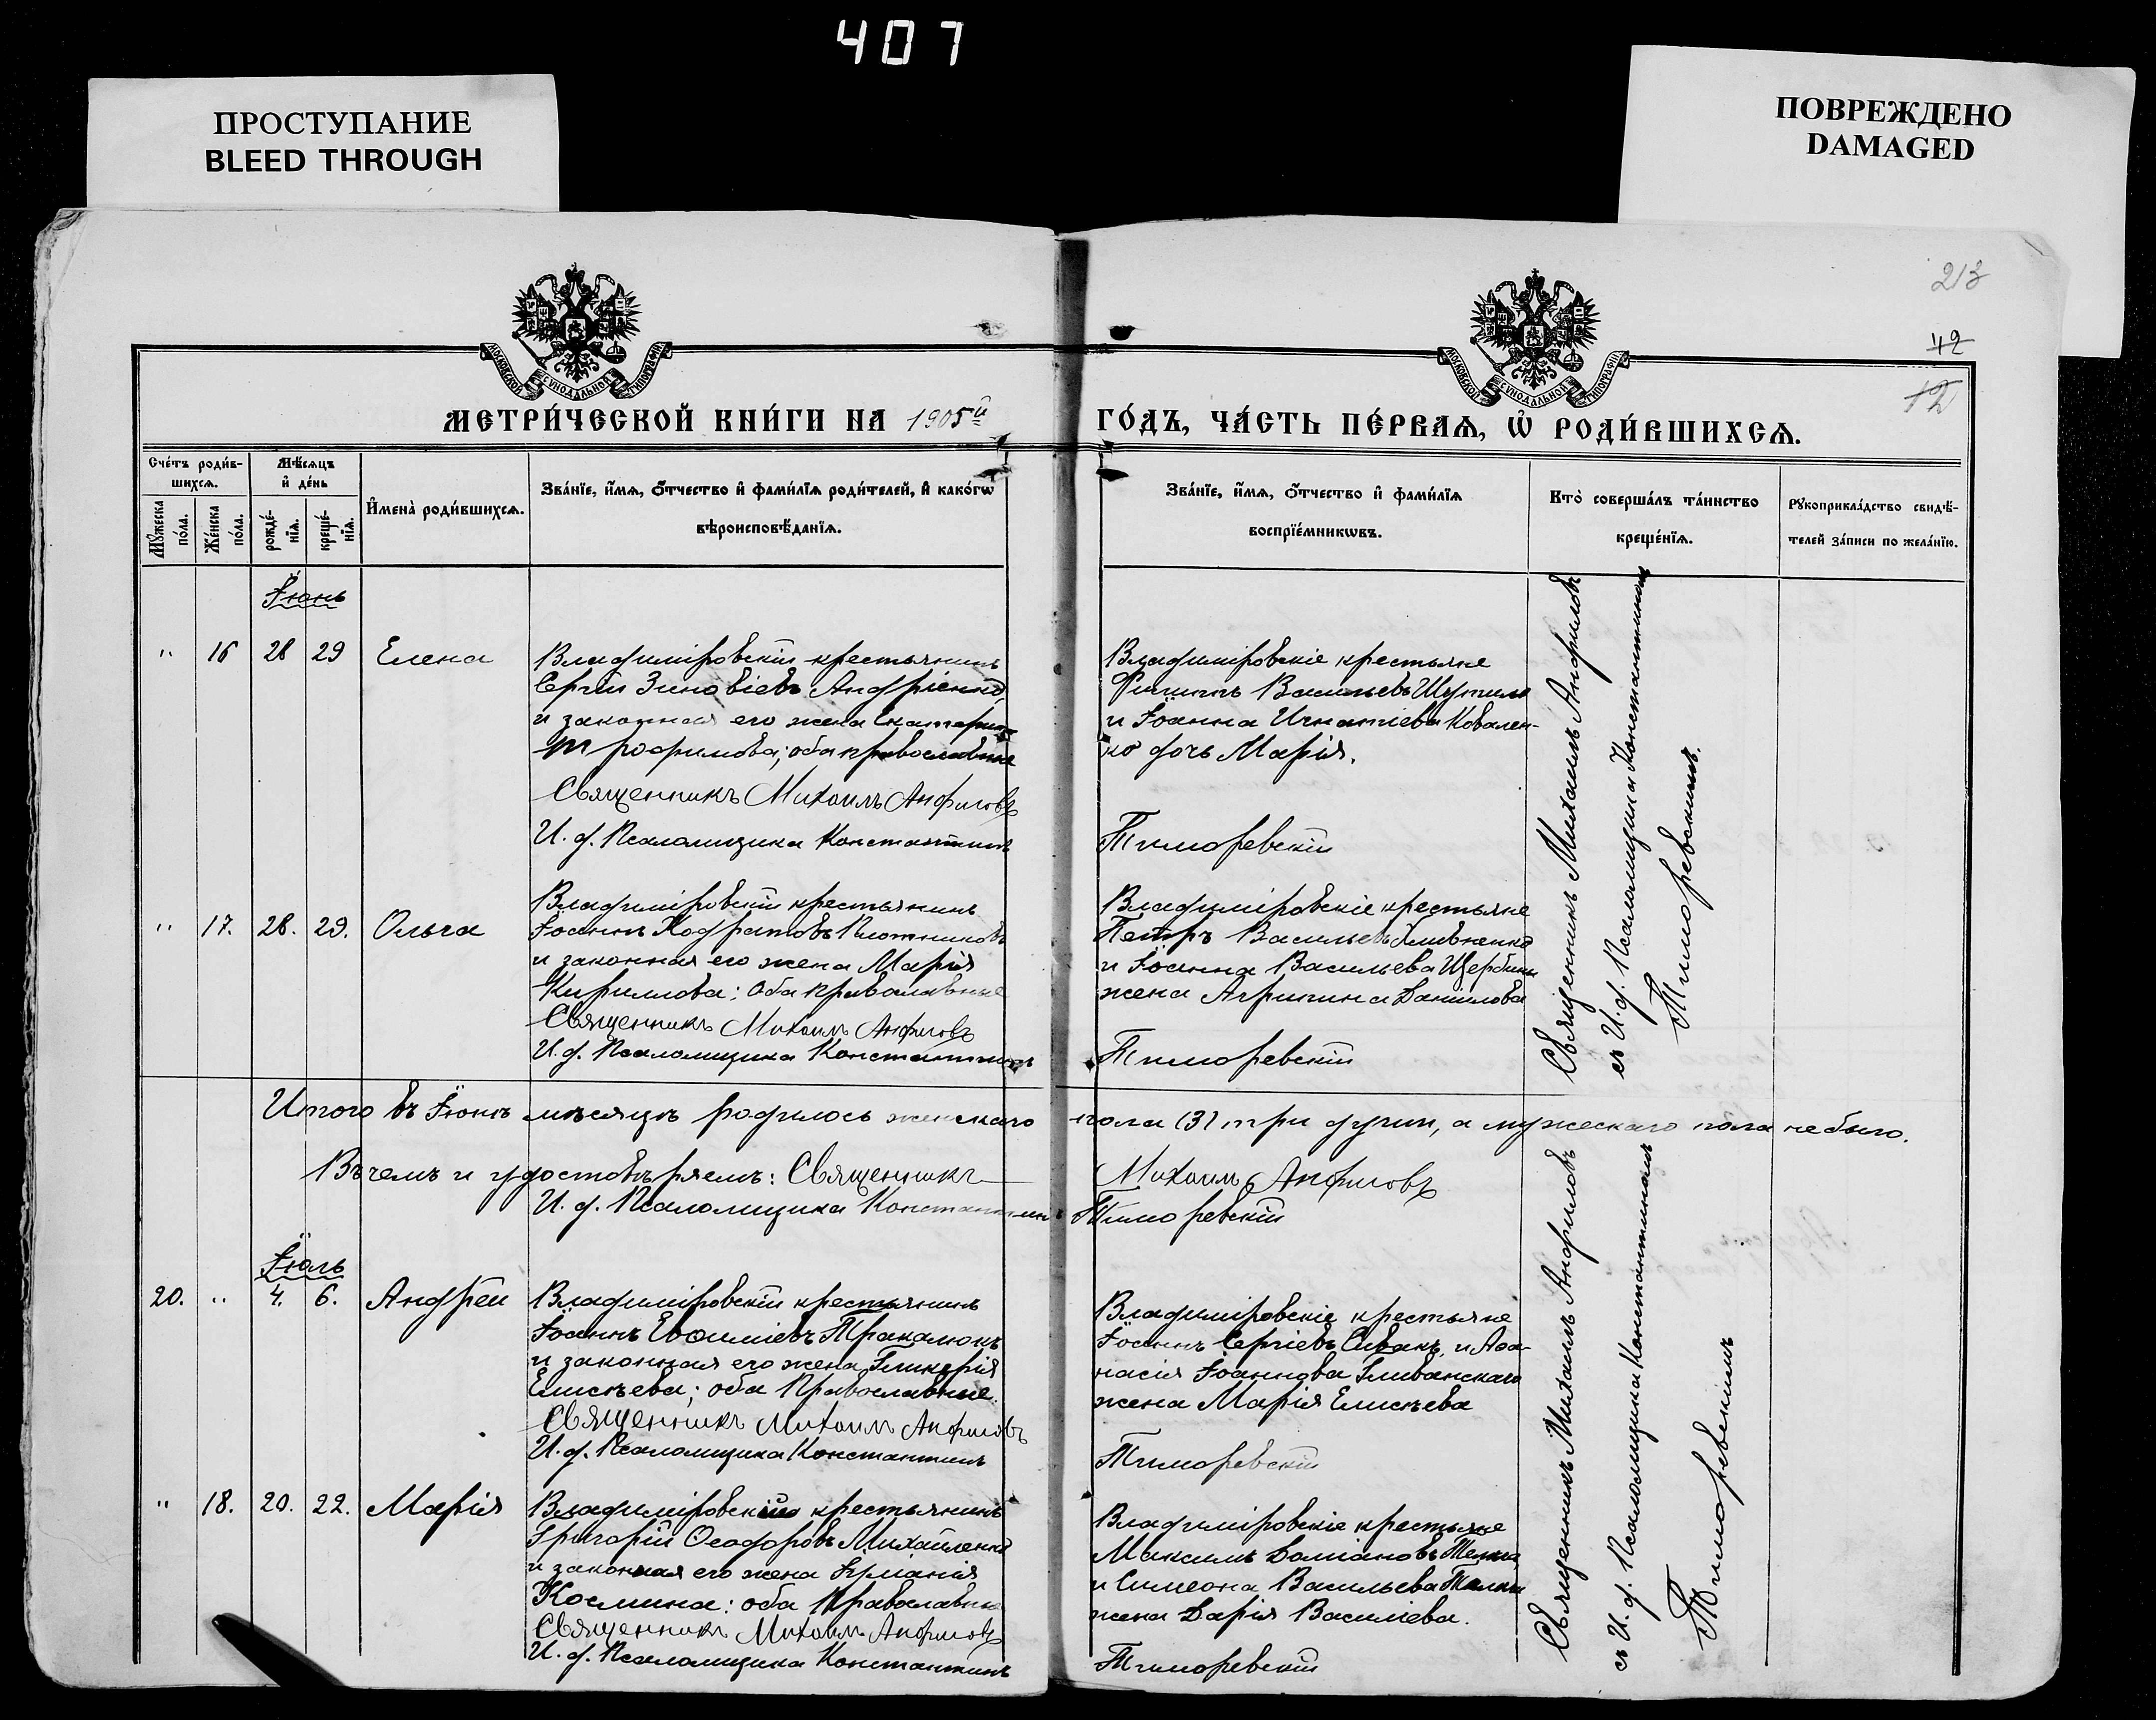 407
ПРОСТУПАНИЕ
BLEED THROUGH
ПОВРЕЖДЕНО
DAMAGED
213
42
12
МОСКОВСКОЙ СѴНОДАЛЬНОЙ ТИПОГРАФІИ
МОСКОВСКОЙ СѴНОДАЛЬНОЙ ТИПОГРАФІИ
МЕТРИ́ЧЕСКОЙ КНИ́ГИ НА 1905й ГО́ДЪ, ЧА́СТЬ ПЕ́РВАѦ, Ѽ РОДИ́ВШИХСѦ.
Сче́тъ роди́в-
шихсѧ.
Мѣ́сѧцъ
и҆ де́нь
Мꙋ́жеска по́ла.
Же́нска по́ла.
рожде́-
нїѧ.
креще́-
нїѧ.
И҆мена̀ роди́вшихсѧ.
Зва́нїе, и҆́мѧ, ѻ҆́тчество и҆ фами́лїѧ роди́телей, и҆ како́гѡ
вѣроисповѣ́данїѧ.
Зва́нїе, и҆́мѧ, ѻ҆́тчество и҆ фами́лїѧ
воспрїе́мникѡвъ.
Кто̀ соверша́лъ та́инство
креще́нїѧ.
Рꙋкоприкла́дство свидѣ́-
телей за́писи по жела́нїю.
Іюнь
" 16 28 29 Елена
Владиміровскій крестьянинъ
Сергій Зиновіевъ Андріенко
и законная его жена Екатерина
Трофимова; оба православные
Священникъ Михаилъ Анфиловъ
И. д. Псаломщика Константинъ
Владиміровскіе крестьяне
Филиппъ Васильевъ
и Іоанна Игнатіева Ковален-
ко дочь Марія.
Тиморевскій
Священникъ Михаилъ Анфиловъ
съ И. д. Псаломщика Константиномъ
Тиморевскимъ.
" 17. 28. 29. Ольга
Владиміровскій крестьянинъ
Іоаннъ Кодратовъ Плотниковъ
и законная его жена Марія
Кириллова; Оба православные
Священникъ Михаилъ Анфиловъ
И. д. Псаломщика Константинъ
Владиміровскіе крестьяне
Петръ Васильевъ
и Іоанна Васильева Щербины
жена Агрипина Данилова
Тиморевскій
Итого въ Іюнѣ мѣсяцѣ родилось женскаго пола (3) три души, а мужескаго пола не было.
Въ чемъ и удостовѣряемъ: Священникъ Михаилъ Анфиловъ
И. д. Псаломщика Константинъ Тиморевскій
Іюль
20. " 4. 6. Андрей
Владиміровскій крестьянинъ
Іоаннъ Евѳиміевъ Тракалюкъ
и законная его жена Гликерія
Елисѣева; оба Православные.
Священникъ Михаилъ Анфиловъ
И. д. Псаломщика Константинъ
Владиміровскіе крестьяне
Іоаннъ Сергіевъ Сивакъ, и Аѳа-
насія Іоаннова Гливанскаго
жена Марія Елисѣева
Тиморевскій
Священникъ Михаилъ Анфиловъ
съ И. д. Псаломщика Константиномъ
Тиморевскимъ
" 18. 20. 22. Марія
Владиміровскій крестьянинъ
Григорій Ѳеодоровъ Михайленко
и законная его жена Ирианія
Космина: оба Православные
Священникъ Михаилъ Анфиловъ
И. д. Псаломщика Константинъ
Владиміровскіе крестьяне
Максимъ Даміановъ
и Симеона Васильева
жена Дарія Василіева.
Тиморевскій